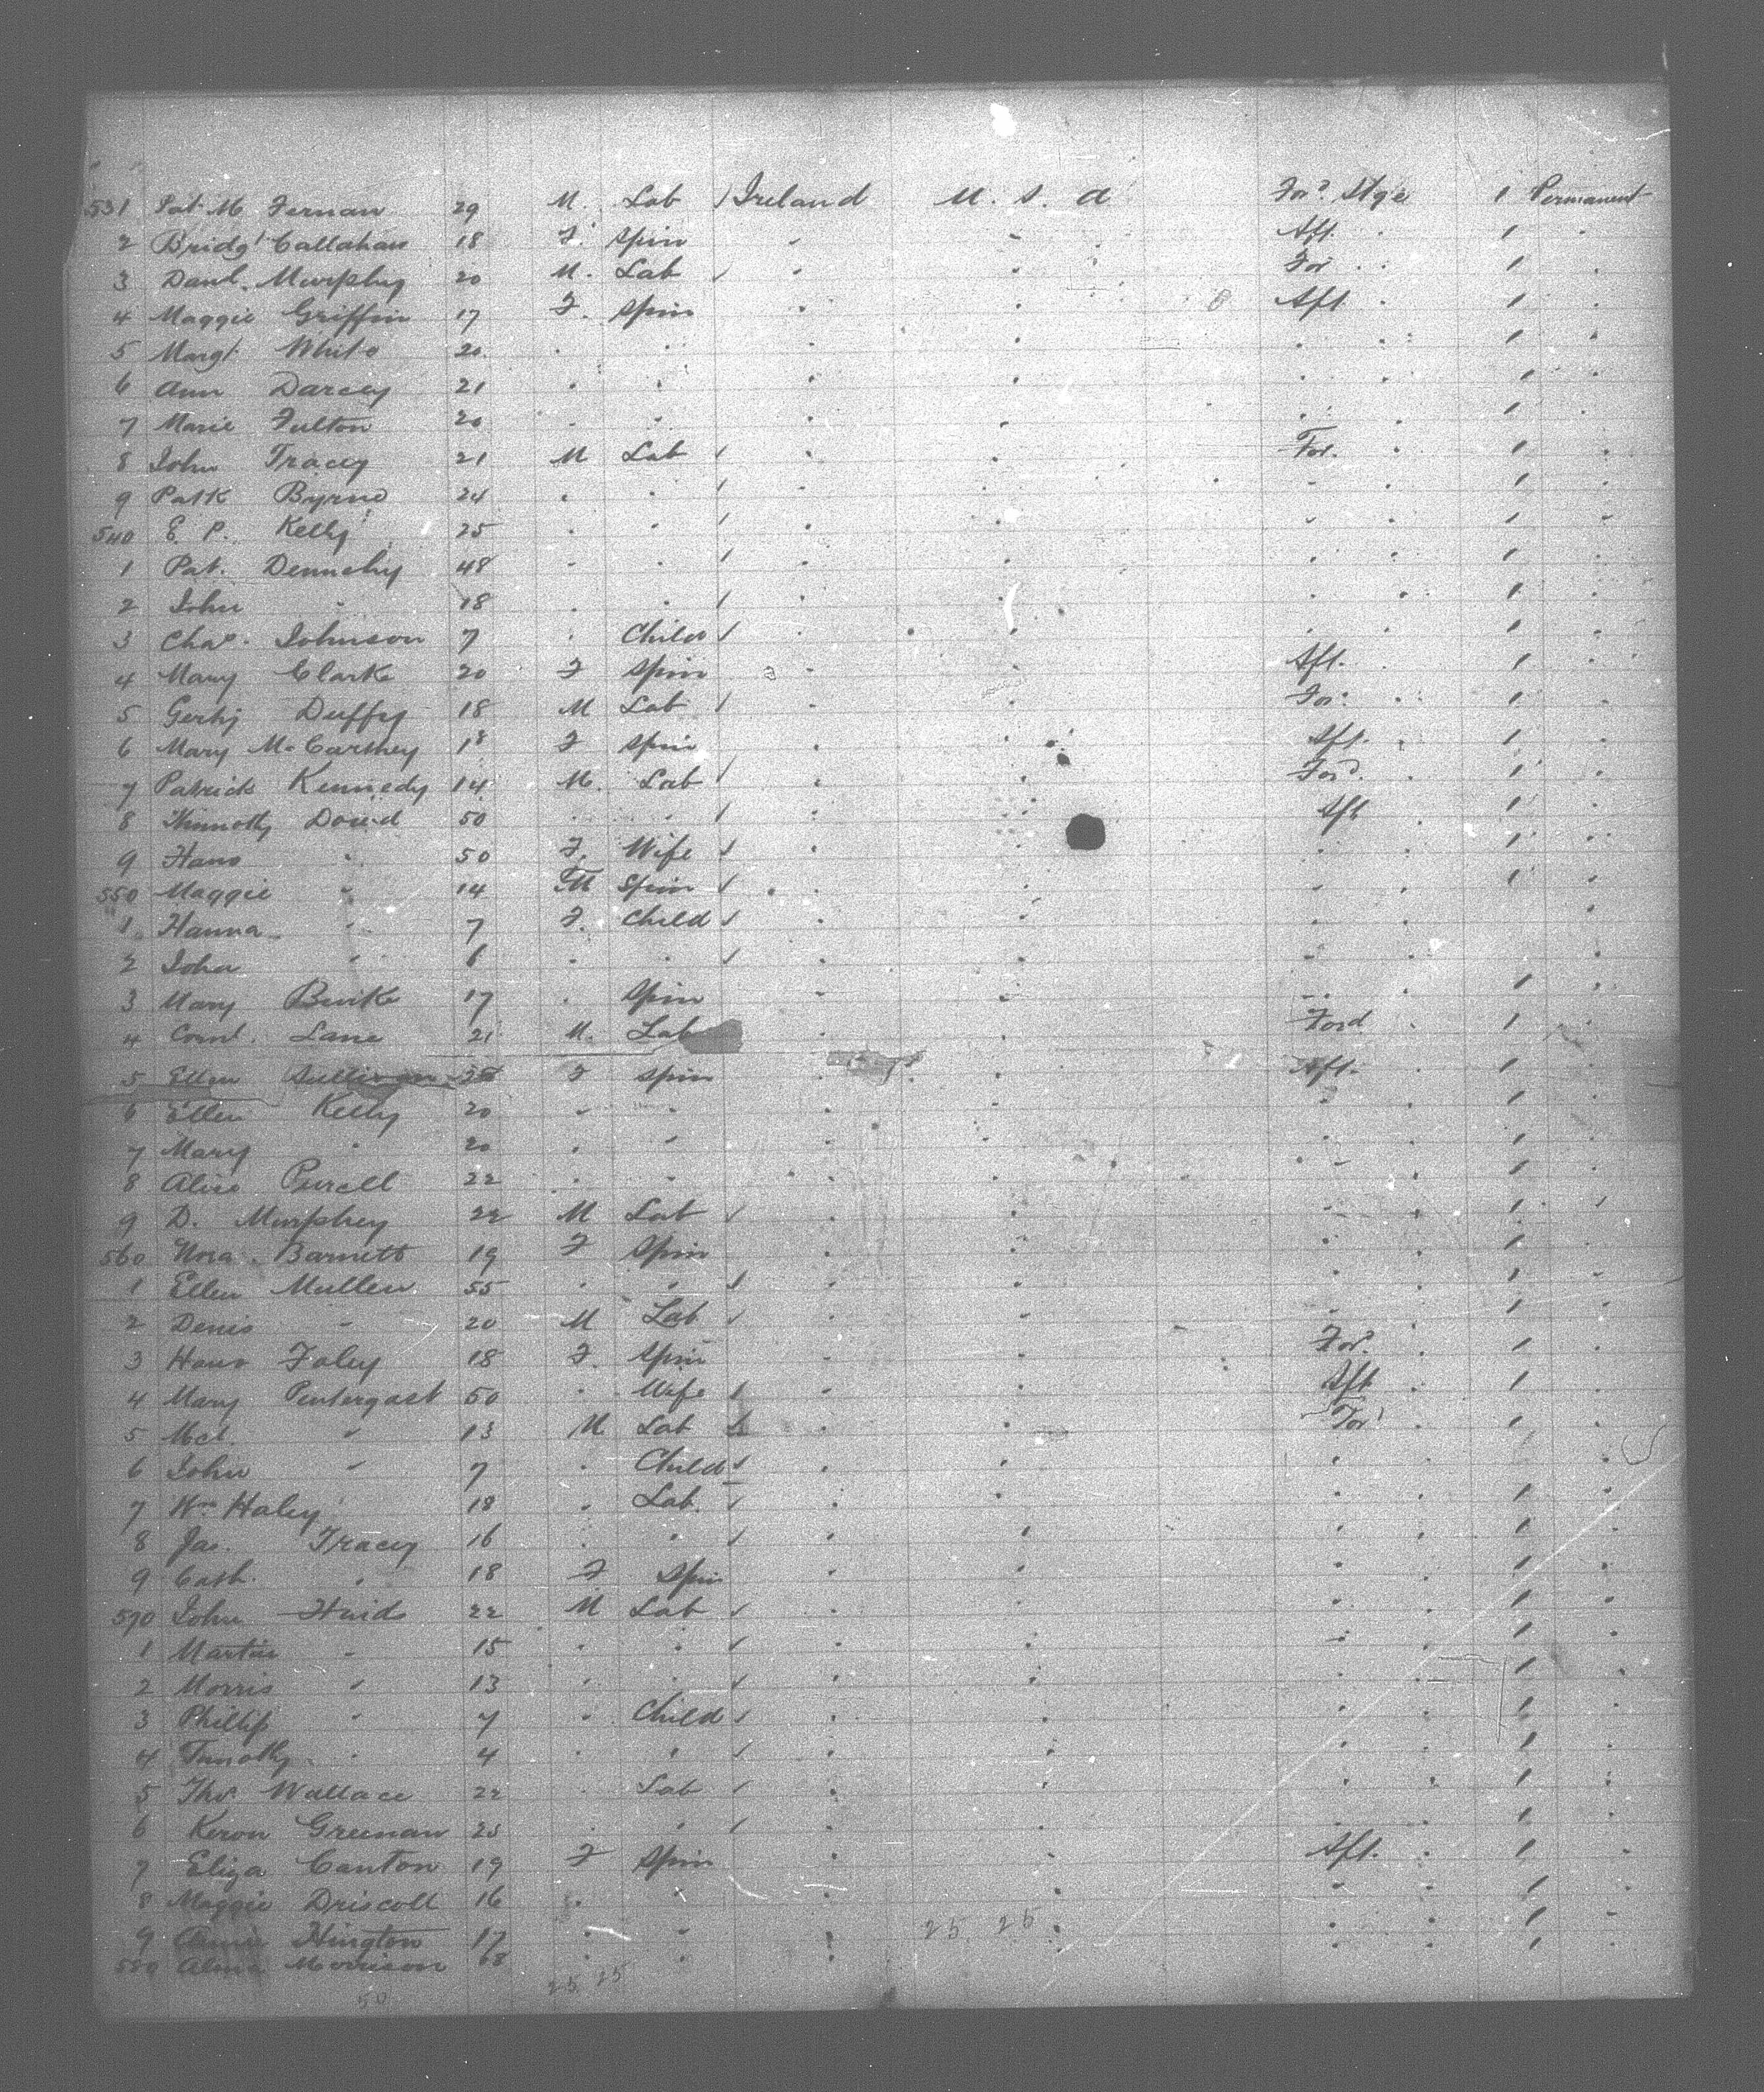 531 Pat. M Fernan 29 M. Lab / Ireland U. S. A For? Stge 1 Permanent
2 Bridgt Callahan 18 F. Spin " " Aft. " 1 "
3 Danl. Murphy 20 M. Lab / " " For " 1 "
4 Maggie Griffin 17 F. Spin " " Aft. " 1 "
5 Margt. White 20 " " " " " " 1 "
6 Ann Darcey 21 " " " " " " 1 "
7 Marie Fulton 20 " " " " " " 1 "
8 John Tracey 21 M Lab / " " For. " 1 "
9 Patk Byrne 24 " " / " " " " 1 "
540 E. P. Kelly 25 " " / " " " " 1 "
1 Pat. Dennehy 48 " " / " " " " 1 "
2 John " 18 " " / " " " " 1 "
3 Chas. Johnson 7 " Child / " " " " 1 "
4 Mary Clarke 20 F Spin " " Aft. " 1 "
5 Duffy 18 M Lab / " " For. " 1 "
6 Mary McCarthey 18 F Spin " " Aft. " 1 "
7 Patrick Kennedy 14 M. Lab / " " Ford. " 1 "
8 50 " " / " " Aft " 1 "
9 Hano " 50 F. Wife / " " " " 1 "
550 Maggie " 14 Spin / " " " " 1 "
1 Hanna " 7 F. Child / " " " " "
2 John " 6 " " / " " " " "
3 Mary Burke 17 " Spin " " " " 1 "
4 Cornl. Lane 21 M. Lab " " Ford " 1 "
5 Ellen Sullivan F Spin " " Aft. " 1 "
6 Ellen Kelly 20 " " " " " " 1 "
7 Mary " 20 " " " " " " 1 "
8 Alice Purcell 22 " " " " " " 1 "
9 D. Murphey 22 M Lab / " " " " 1 "
560 Nora Barnett 19 F Spin " " " " 1 "
1 Ellen Mullen 55 " " / " " " " 1 "
2 Denis " 20 M Lab / " " " " 1 "
3 Hano Foley 18 F. Spin " " For. " 1 "
4 Mary Pentergast 50 " Wife / " " Aft " 1 "
5 Mcl. " 13 M Lab / " " For " 1 "
6 John " 7 " Child / " " " " "
7 Wm Haley 18 " Lab. / " " " " 1 "
8 Jas. Tracey 16 " " / " " " " 1 "
9 Cath. " 18 F Spin " " " " 1 "
570 John 22 M Lab / " " " " 1 "
1 Martin " 15 " " / " " " " 1 "
2 Morris " 13 " " / " " " " 1 "
3 Phillip " 7 " Child / " " " " 1 "
4 Timothy " 4 " " / " " " " 1 "
5 Thos Wallace 22 " Lab / " " " " 1 "
6 Keron Greenan 25 " " / " " " " 1 "
7 Eliza Canton 19 F Spin " " Aft. " 1 "
8 Maggie Driscoll 16 " " " " " " 1 "
9 Annie Hington 17 " " " 25 25 " " " 1 "
580 Morrison 68 " " " " " " 1
50 25 25